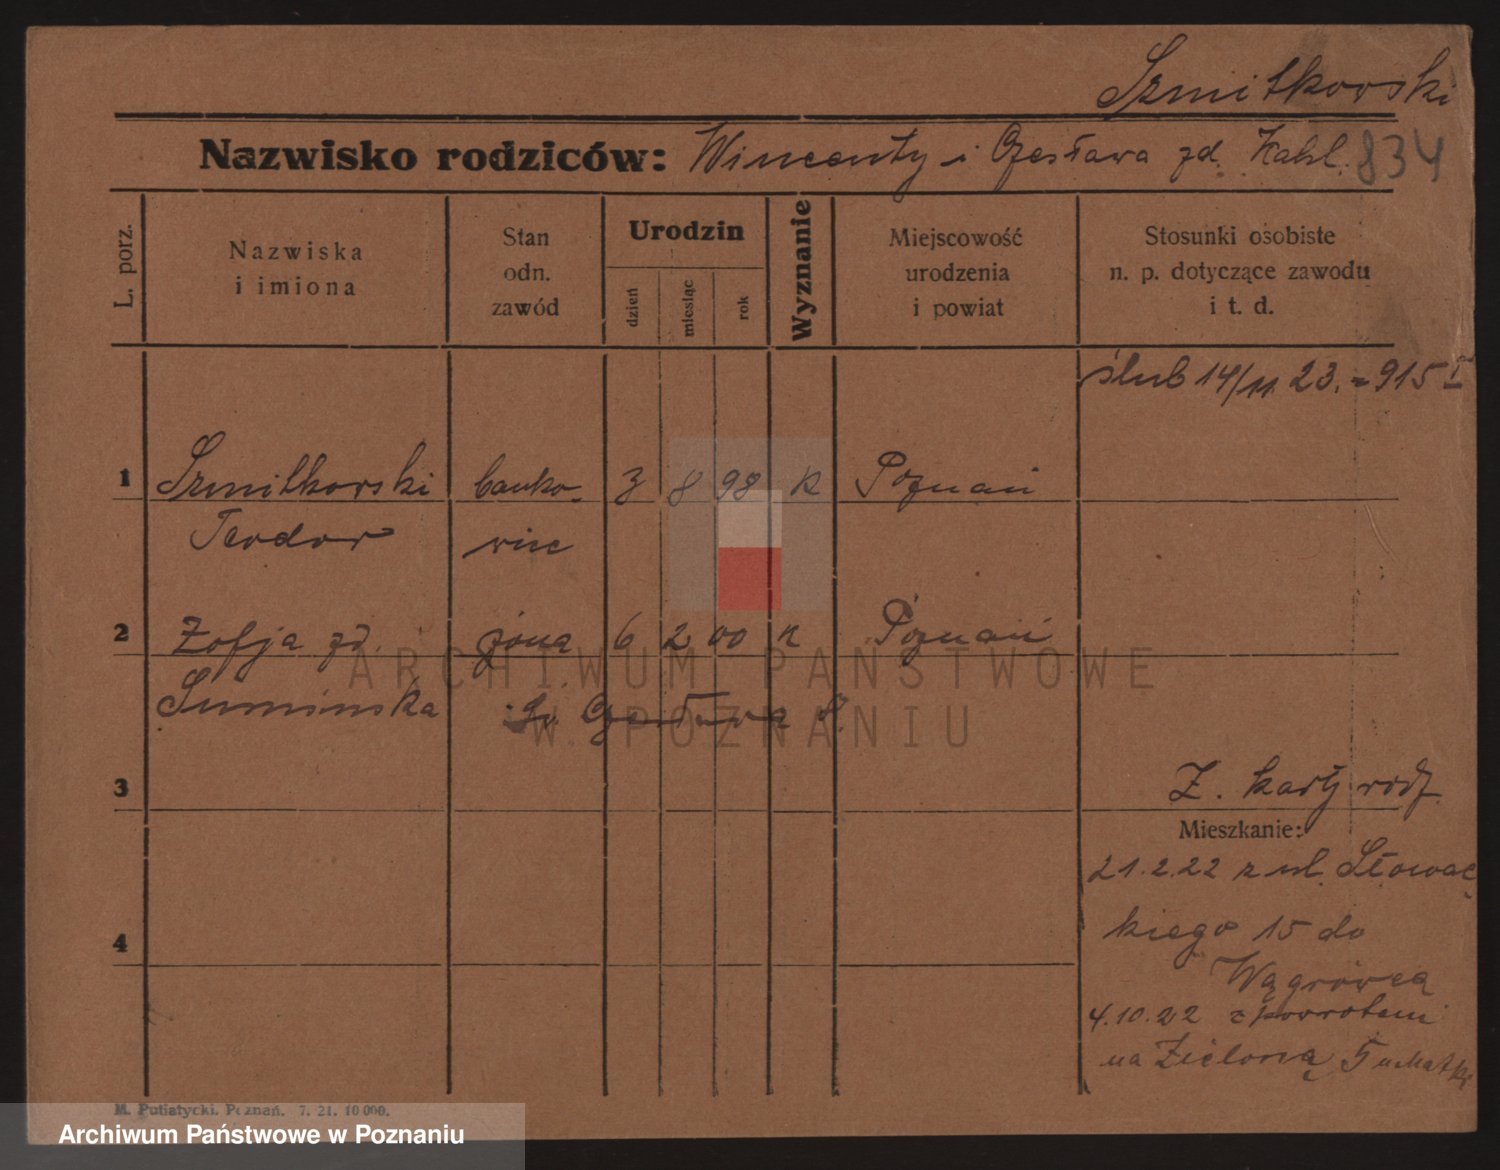 Szmitkowski
Nazwisko rodziców: Wincenty i Czesława zd. Kahl. 834
L. porz.
Nazwiska
i imiona
Stan
odn.
zawód
Urodzin
dzień
miesiąc
rok
Wyznanie
Miejscowość
urodzenia
i powiat
Stosunki osobiste
n. p. dotyczące zawodu
i t. d.
ślub 14/11 23. = 915 I
1 Szmitkowski banko- 3 8 98 K Poznań
Teodor wiec
2 Zofja zd. żona 6 2 00 K Poznań
Sumińska
3
Z. karty rodz.
Mieszkanie:
21.2.22 z ul. Słowac
kiego 15 do
4
Wągrówca
4.10.22 z powrotem
na Zieloną 5 u Matki
M. Putiatycki. Poznań. 7. 21. 10 000.
ARCHIWUM PAŃSTWOWE
W POZNANIU
Archiwum Państwowe w Poznaniu